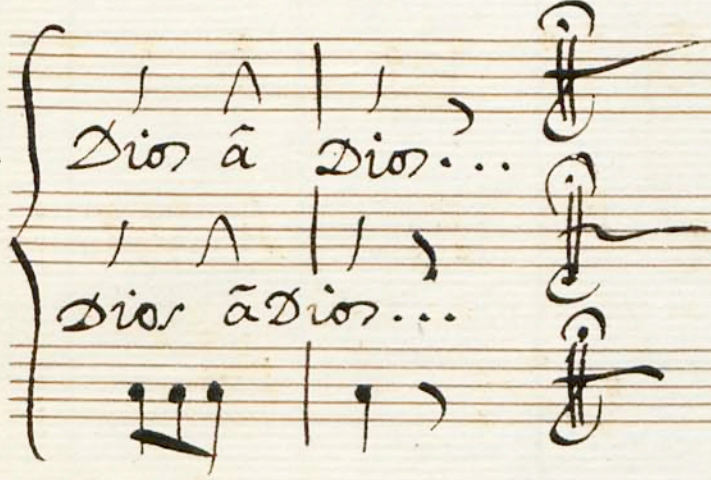 Dios ã Dios....
Dios ã Dios...